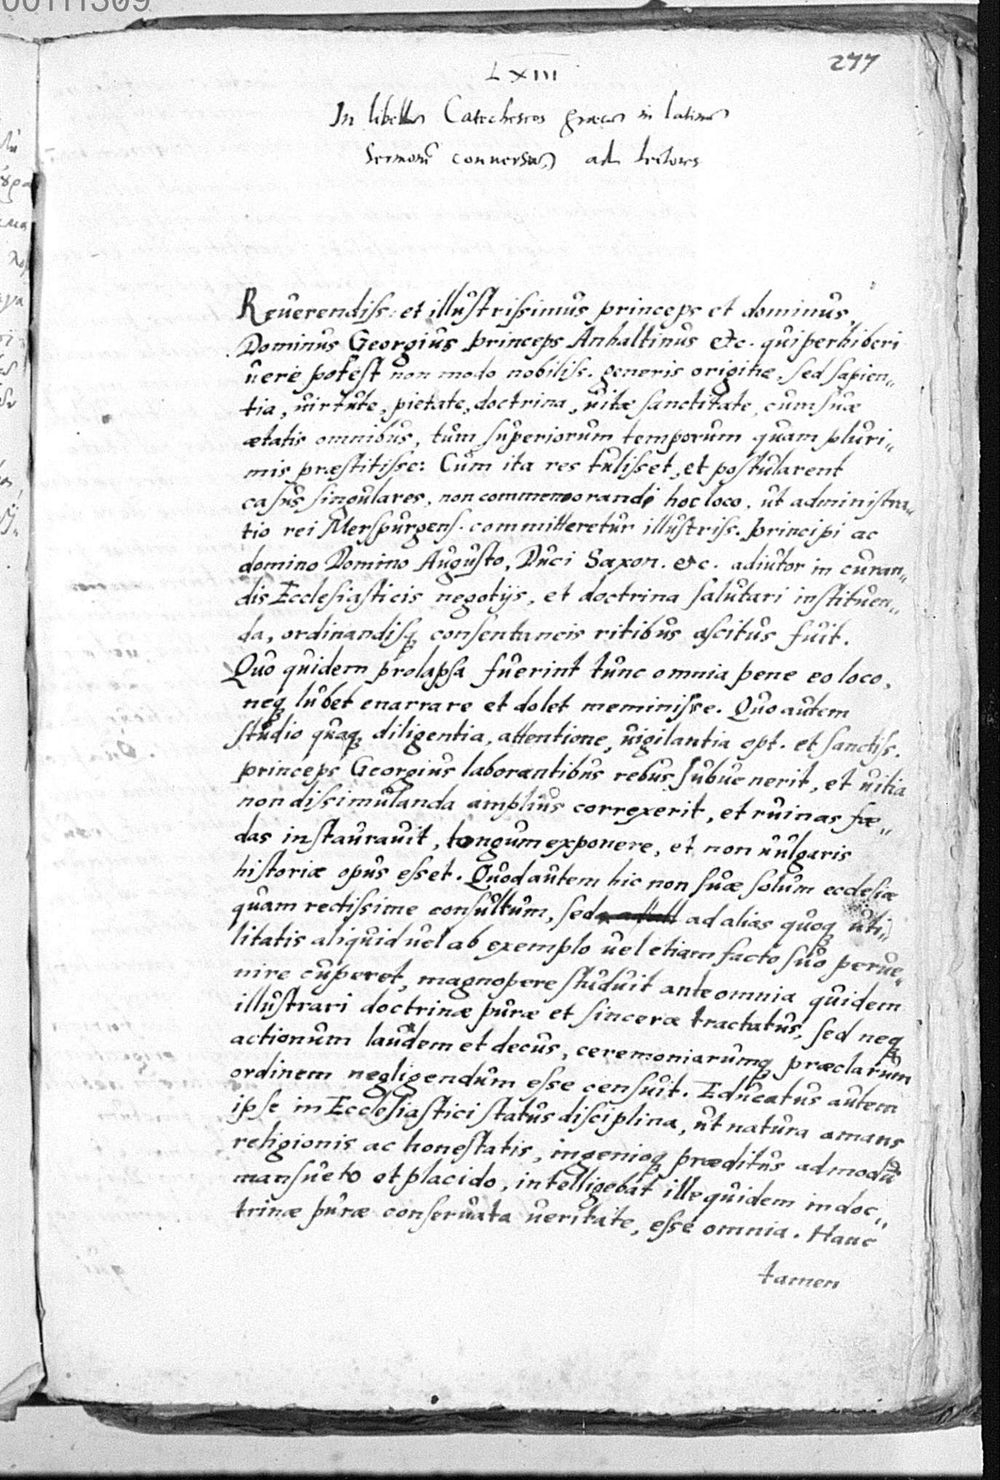 277
LXIII
In libellum Catecheseos graecum in latinum
Sermonem conversum ad lectores
Reuerendiss: et illustrissimus princeps et dominus,
Dominus Georgius princeps Anhaltinus etc. qui perhiberi
uere potest non modo nobiliss. generis origine, sed sapien„
tia, uirtute, pietate, doctrina, uitæ sanctitate, cum suæ
ætatis omnibus, tum superiorum temporum quam pluri„
mis præstitisse: Cum ita res tulisset, et postularent
casus singulares, non commemorandi hoc loco, ut administra„
tio rei Merspurgens. committeretur illustriss. principi ac
domino Domino Augusto, Duci Saxon. etc. adiutor in curan„
dis Ecclesiasticis negotijs, et doctrina salutari instituen„
da, ordinandisq consentaneis ritibus ascitus fuit.
Quo quidem prolapsa fuerint tunc omnia pene eo loco,
neq lubet enarrare et dolet meminisse. Quo autem
studio quaq diligentia, attentione, uigilantia opt. et sanctiss.
princeps Georgius laborantibus rebus subuenerit, et uitia
non dissimulanda amplius correxerit, et ruinas fœ„
das instaurauit, longum exponere, et non uulgaris
historiæ opus esset. Quod autem hic non suæ solum ecclesiæ
quam rectissime consultum, sed ad alias quoq uti„
litatis aliquid uel ab exemplo uel etiam facto suo perue„
nire cuperet, magnopere studuit ante omnia quidem
illustrari doctrinæ puræ et sinceræ tractatus, sed neq
actionum laudem et decus, ceremoniarumq præclarum
ordinem negligendum esse censuit. Educatus autem
ipse in Ecclesiastici status disciplina, ut natura amans
religionis ac honestatis, ingenioq præditus admodū
mansueto et placido, intelligebat ille quidem in doc„
trinæ puræ conseruata ueritate, esse omnia. Hanc
tamen